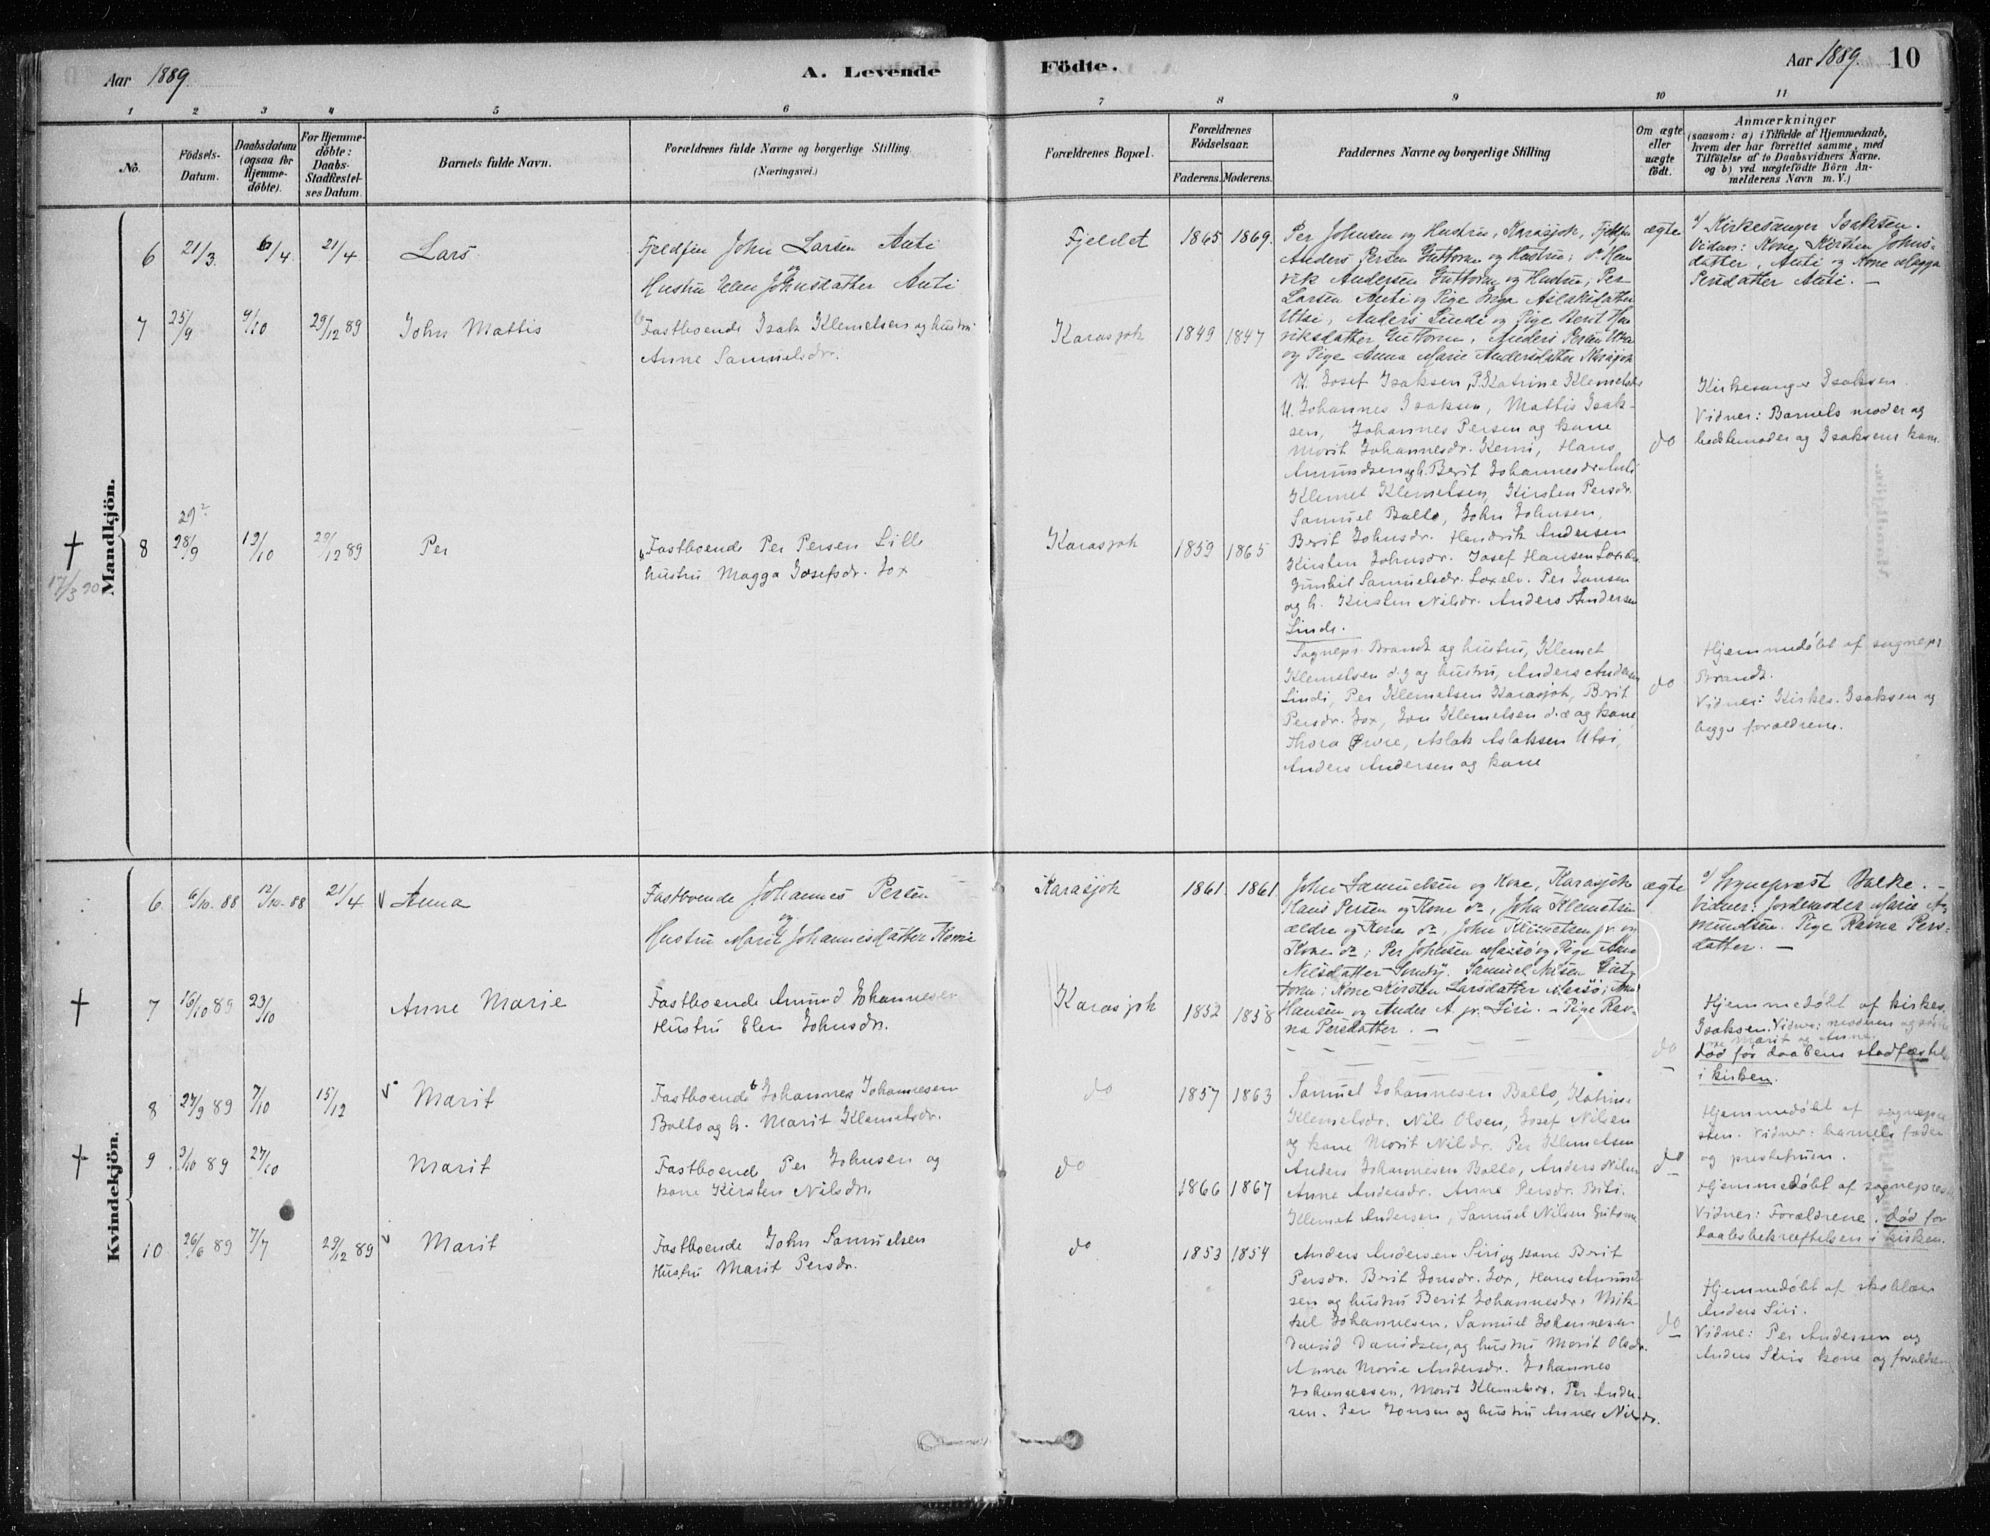 Aar 1889.
A. Levende
Födte.
Aar 1889.
10
1 2 3 4 5 6 7 8 9 10 11
No.
Födsels-
Datum.
Daabsdatum
(ogsaa for
Hjemme-
döbte).
For Hjemme-
döbte:
Daabs-
Stadfæstel-
ses Datum.
Barnets fulde Navn.
Forældrenes fulde Navne og borgerlige Stilling
(Næringsvei.)
Forældrenes Bopæl.
Forældrenes
Födselsaar.
Faderens. Moderens.
Faddernes Navne og borgerlige Stilling
Om ægte
eller
uægte
födt.
Anmærkninger
(saasom: a) i Tilfælde af Hjemmedaab,
hvem der har forrettet samme, med
Tilföielse af to Daabsvidners Navne.
og b) ved uægtefödte Börn An-
melderens Navn m. V.)
Mandkjön.
6 21/3 6/4 21/4 Lars
Fjeldfin John Larsen Anti
og
Hustru Elen Johnsdatter Anti
Fjeldet 1865 1869.
Per Johnsen og Hustru, Karasjok,
Anders Persen Guttorm og Hustru; Hen-
rik Andersen Guttorm og Hustru; Per
Larsen Anti og Pige Inga Aslaksdatter
Utsi, Anders Lindi og Pige Berit Hen-
riksdatter Guttorm, Anders Persen Utsi
og Pige Anna Marie Andersdatter Karasjok
ægte
a/ Kirkesanger Isaksen.
Vidner: Kone Kirsten Johns-
datter, Anti og Kone Magga
Persdatter Anti. —
7 25/9 9/10 29/12 89 John Mattis
Fastboende Isak Klemetsen og hustru
Anne Samuelsdr.
Karasjok 1849 1847
U. Josef Isaksen, P. Katrine Klemetsdr
U. Johannes Isaksen, Mattis Isak-
sen, Johannes Persen og kone
Marit Johannesdr. Kemi, Hans
Amundsen og h. Berit Johannesdr. Anti
Klemet Klemetsen, Kirsten Persdr.
Samuel Balto, John Johnsen,
Berit Johnsdr. Hendrik Andersen
Kirsten Johnsdr. Josef Hansen
Gunhil Samuelsdr. Laxelv. Per Jonsen
og h. Kirsten Nilsdr. Anders Andersen
Lindi.
do
Kirkesanger Isaksen.
Vidner: Barnets moder og
bedstemoder og Isaksens kone.
† 17/3 90
8 29? 28/9 12/10 29/12 89 Per
Fastboende Per Persen Lille
hustru Magga Josefsdr. Jox
Karasjok 1859 1865
Sognepr. Brandt og hustru, Klemet
Klemetsen d.y og hustru, Anders Andersen
Lindi, Per Klemetsen Karasjok, Berit
Persdr. Jox, Jon Klemetsen d.æ og kone
Thora, Aslak Aslaksen Utsi,
Anders Andersen og kone
do
Hjemmedøbt af sognepr.
Brandt.
Vidner: Kirkes. Isaksen og
begge forældrene.
Kvindekjön.
6 6/10. 88 12/10. 88 21/4 Anna
Fastboende Johannes Persen
og
Hustru Marit Johannesdatter Kemi
Karasjok 1861. 1861.
John Samuelsen og Kone, Karasjok
Hans Persen og Kone do, John Klemetsen
ældre og Kone do, John Klemetsen jr. og
Kone do; Per Johnsen og Pige Anna
Nilsdatter. Samuel Nilsen Gut-
torm; Kone Kirsten Larsdatter;
Hansen og Anders A. jr. Siri. — Pige Rav-
na Persdatter. —
ægte
a/ Sognepræst Balke. —
Vidner: Jordemoder Marie A-
mundsen. Pige Ravna Pers-
datter. —
† 7 16/10 89 23/10 Anne Marie
Fastboende Amund Johannesen
Hustru Elen Johnsdr.
Karasjok 1852 1858
do
Hjemmedøbt af kirkes.
Isaksen. Vidner: moderen og
Marit og Anne
død før daabens stadfæstelse
i kirken.
8 27/9 89 7/10 15/12 Marit
Fastboende Johannes Johannesen
Balto og h. Marit Klemetsdr.
do 1857 1863
Samuel Johannesen Balto, Katrine
Klemetsdr. Nils Olsen, Josef Nilsen
og kone Marit Nilsdr. Per Klemetsen
Anders Johannesen Balto, Anders Nilsen
do
Hjemmedøbt af sognepræ-
sten. Vidner: barnets fader
og prestefruen.
† 9 3/10 89 27/10 Marit
Fastboende Per Johnsen og
kone Kirsten Nilsdr.
do 1866 1867
Anne Andersdr. Anne Persdr. Biti.
Klemet Andersen, Samuel Nilsen Guttorm
Hjemmedøbt af sognepresten
Vidner: Forældrene. død før
daabsbekræftelsen i kirken.
10 26/6 89 7/7 29/12 89 Marit
Fastboende John Samuelsen
Hustru Marit Persdr.
do 1853 1854
Anders Andersen Siri og kone Berit
Persdr. Berit Jonsdr. Jox, Hans Amund-
sen og hustru Berit Johannesdr. Mik-
kel Johannesen. Samuel Johannesen
David Davidsen, og hustru Marit Olsdr.
Anna Marie Andersdr. Johannes
Johannesen, Marit Klemetsdr. Per Ander-
sen. Per Jonsen og hustru Anne Nilsdr.
do
Hjemmedøbt af skolelær
Anders Siri.
Vidne: Per Andersen og
Anders Siris kone og forældrene